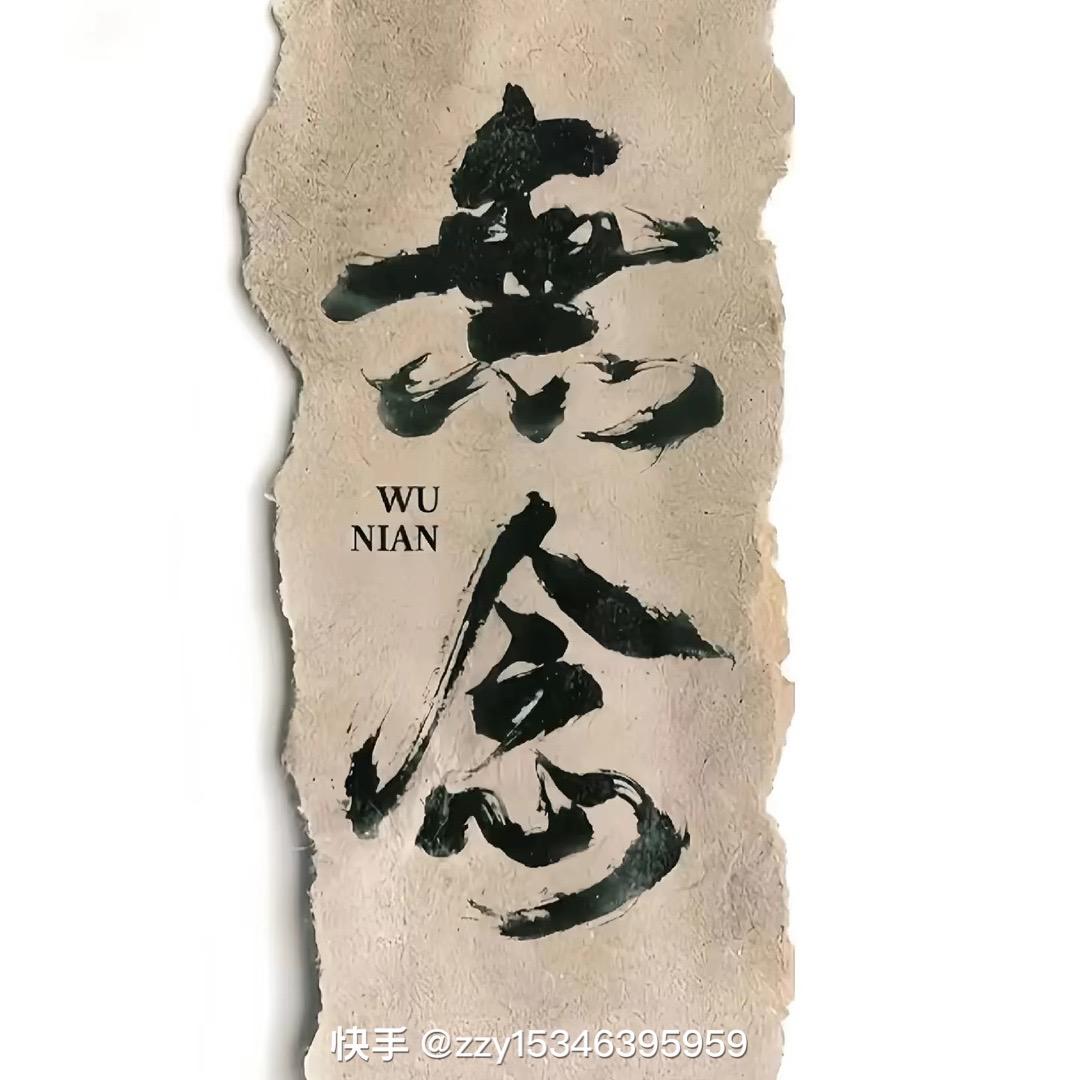 無
WU
NIAN
念
快手 @zzy15346395959